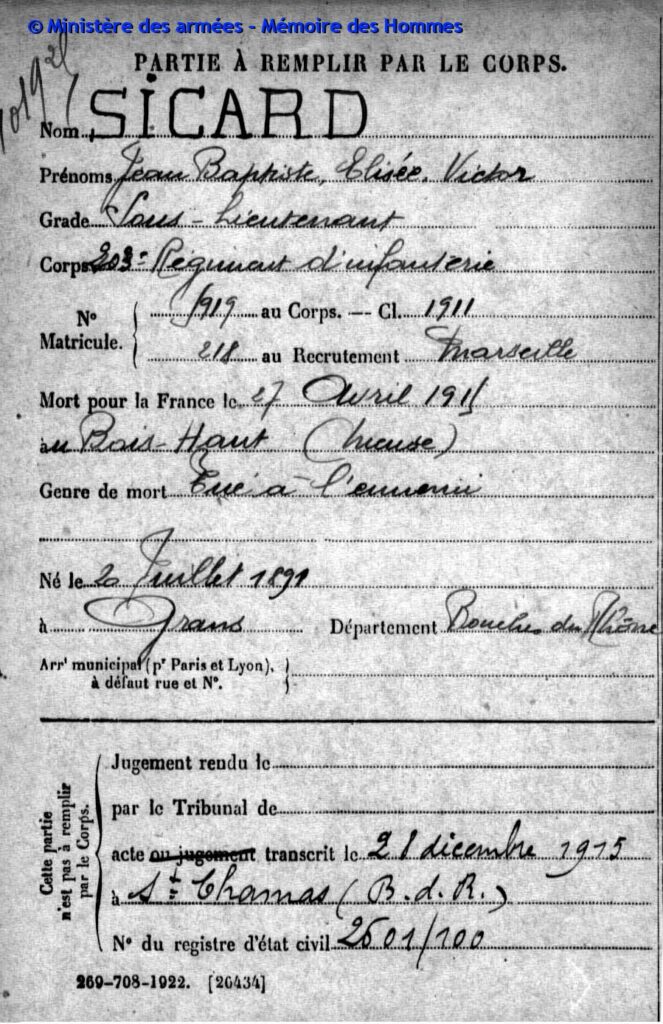 © Ministère des armées - Mémoire des Hommes
PARTIE À REMPLIR PAR LE CORPS.
Nom SICARD
Prénoms Jean Baptiste, Elisée, Victor
Grade Sous-Lieutenant
Corps 203e Régiment d'infanterie
N° Matricule. 5919 au Corps. — Cl. 1911
218 au Recrutement Marseille
Mort pour la France le 27 Avril 1915
au Bois-Haut (Meuse)
Genre de mort Tué à l'ennemi
Né le 20 Juillet 1891
à Grans Département Bouches du Rhône
Arrt municipal (pr Paris et Lyon),
à défaut rue et N°.
Cette partie n'est pas à remplir par le Corps.
Jugement rendu le
par le Tribunal de
acte ou jugement transcrit le 21 décembre 1915
à St Chamas (B.d.R.)
N° du registre d'état civil 2601/100
269-708-1922. [26434]